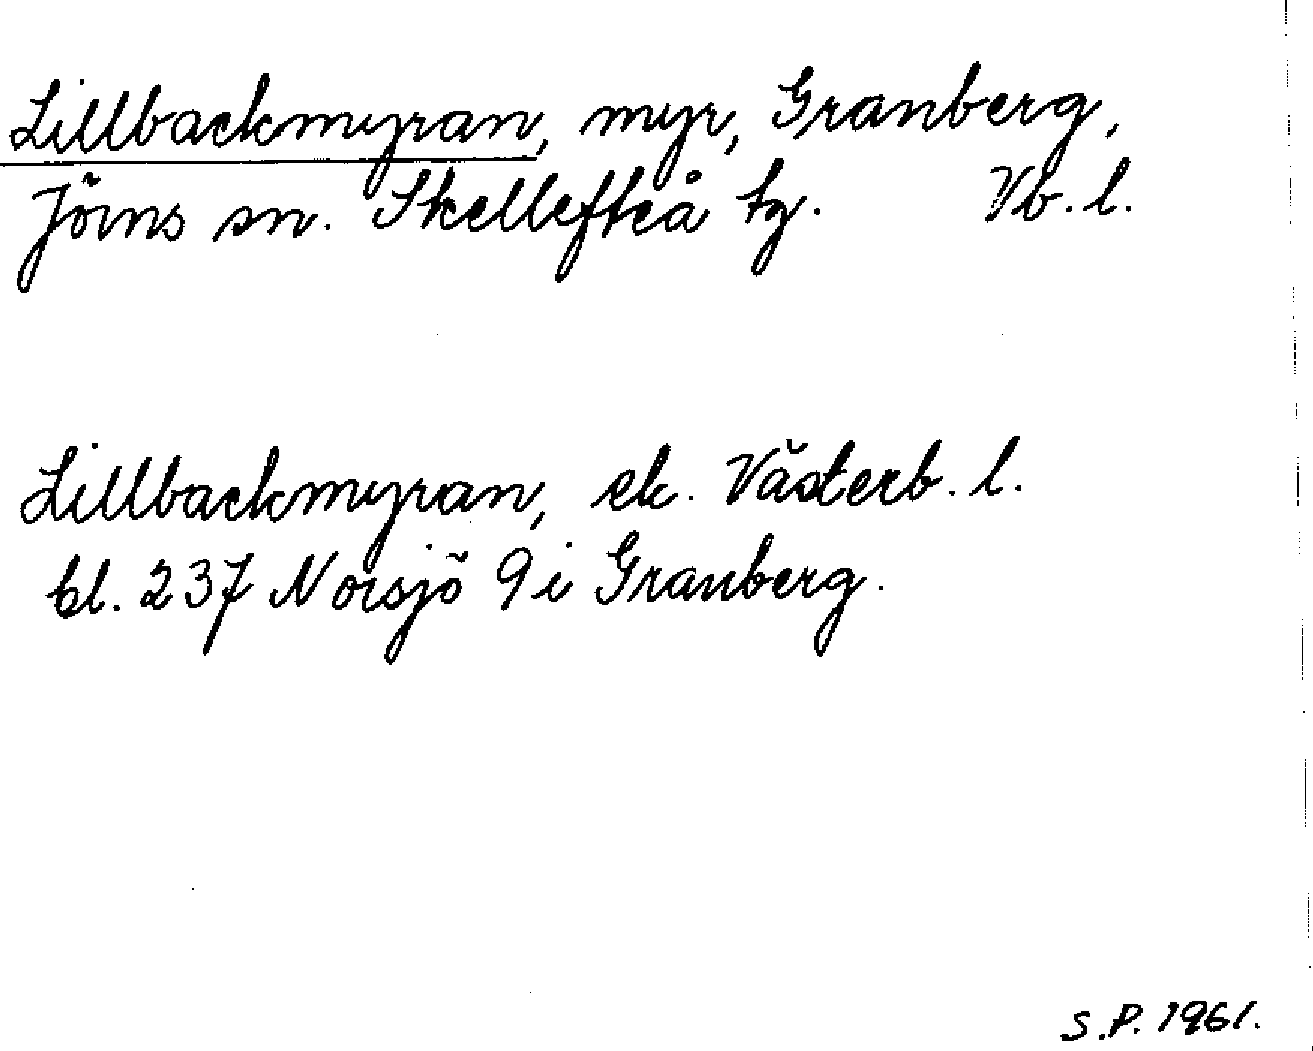 Lillbackmyran, myr, Granberg,
Jörns sn. Skellefteå tg. Vb. l.
Lillbackmyran, ek. Västerb. l.
bl. 237 Norsjö 9 i Granberg.
S.P. 1961.